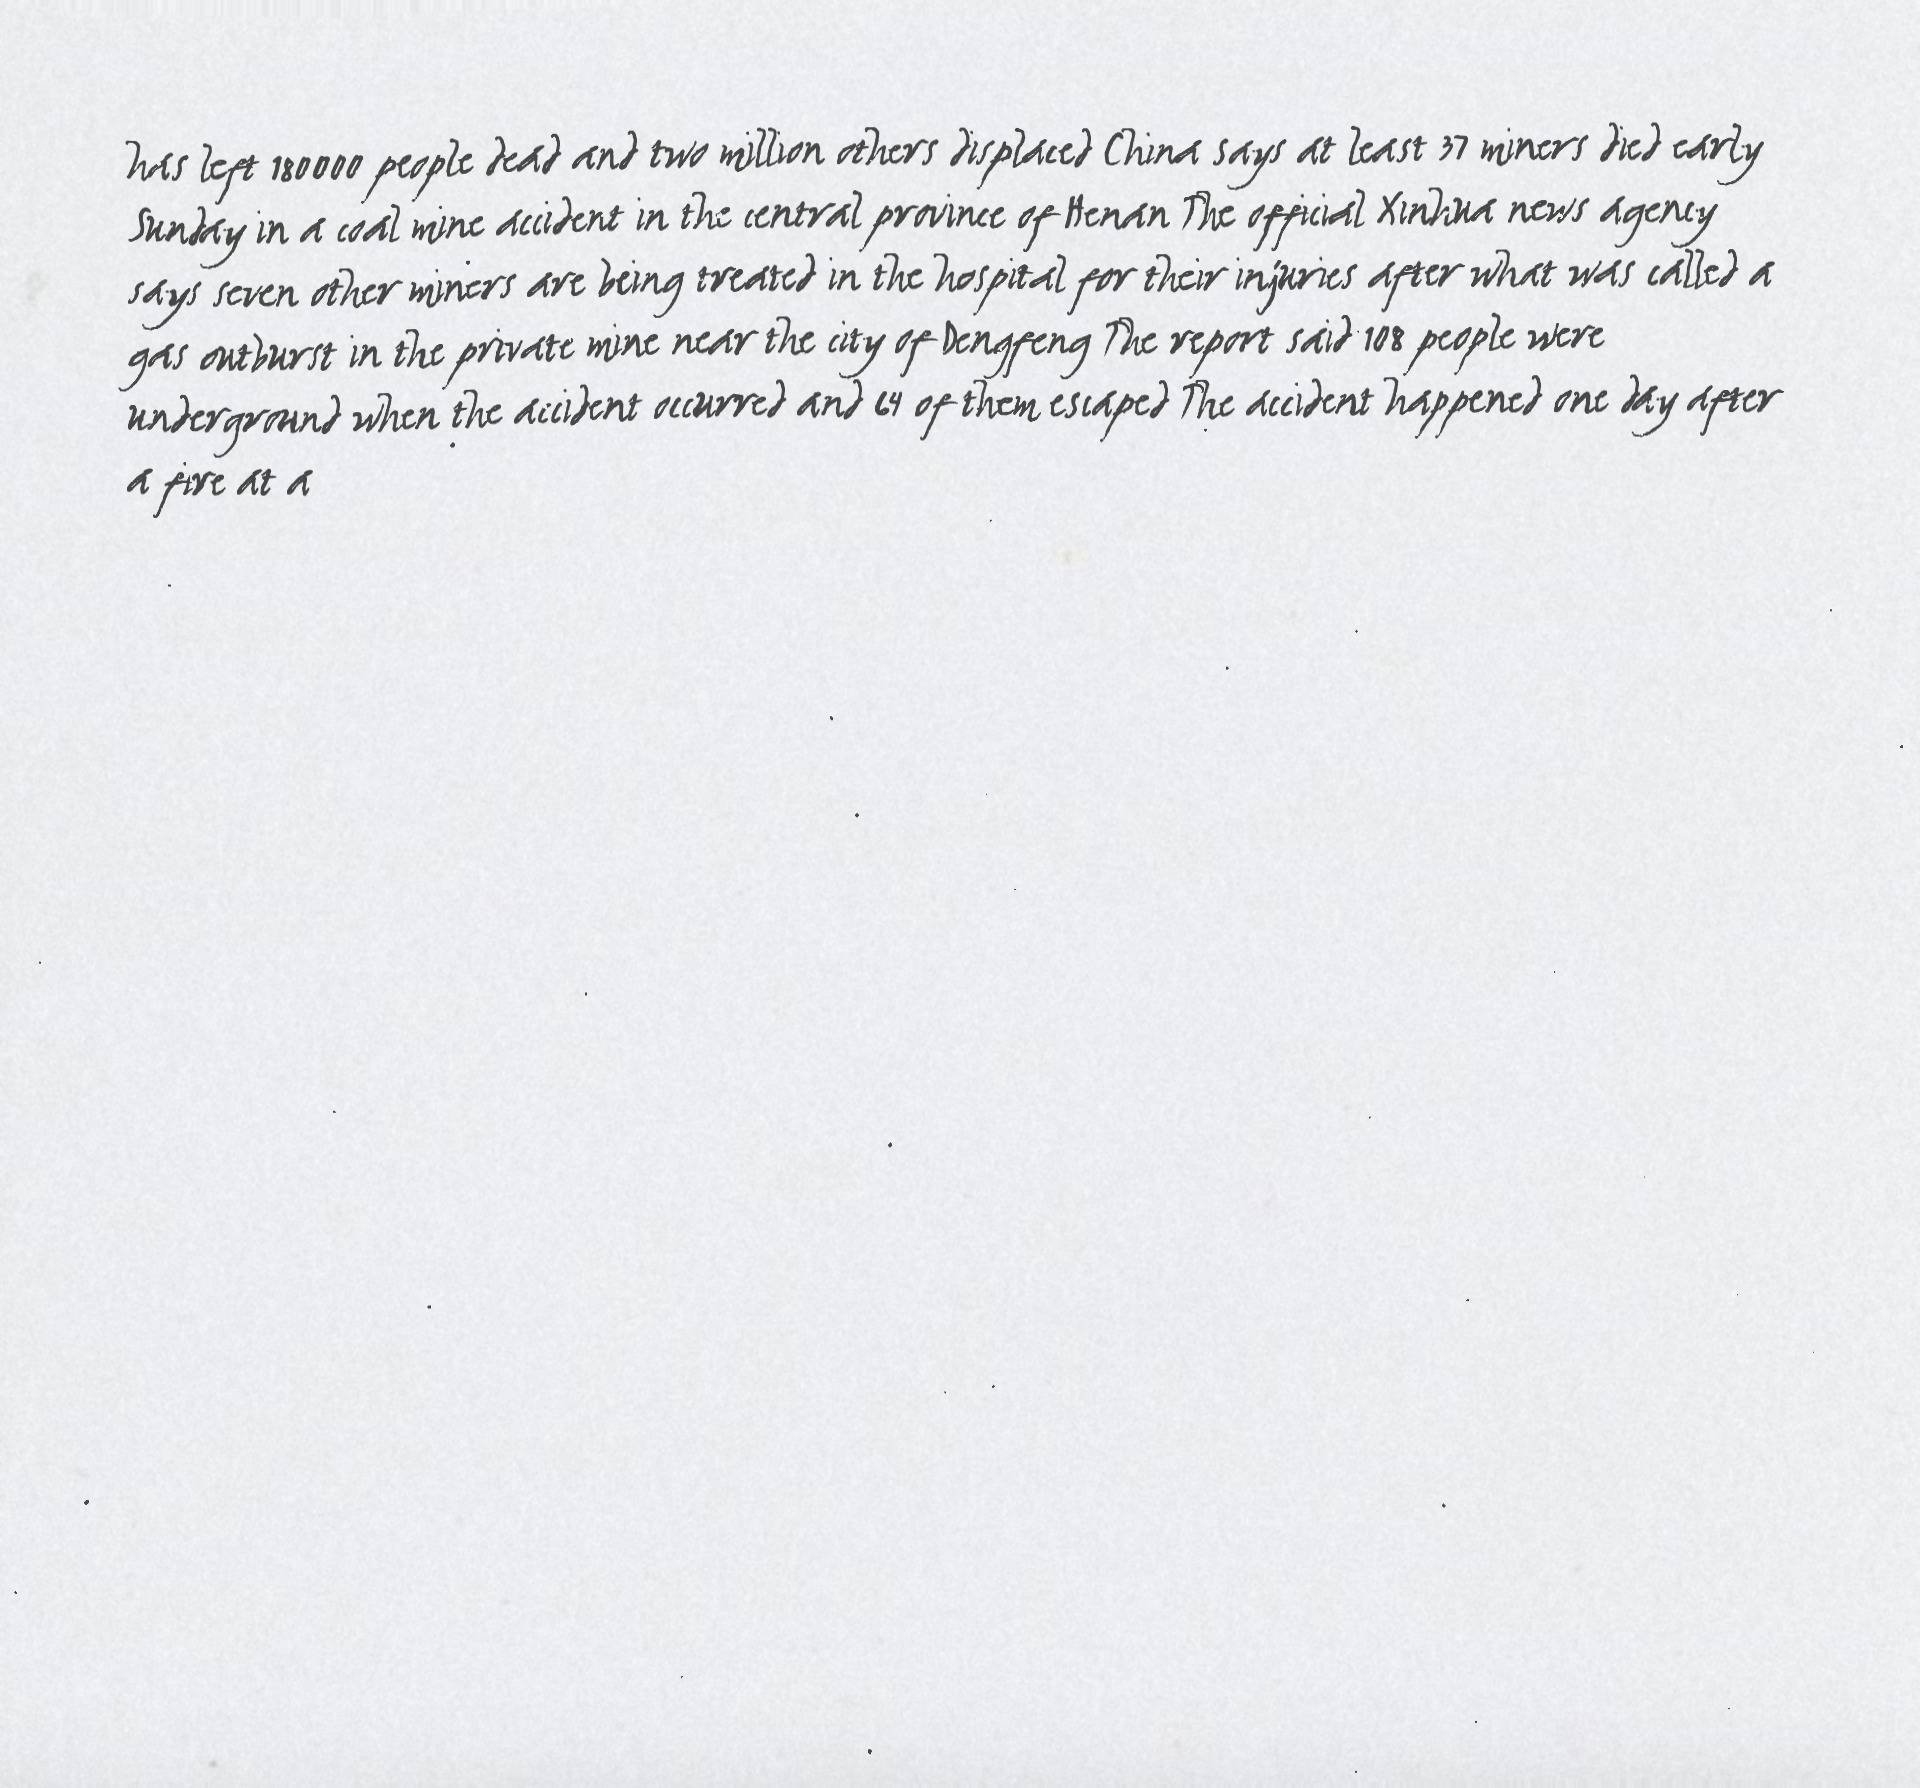 has left 180000 people dead and two million others displaced China says at least 37 miners died early
Sunday in a coal mine accident in the central province of Henan The official Xinhua news agency
says seven other miners are being treated in the hospital for their injuries after what was called a
gas outburst in the private mine near the city of Dengfeng The report said 108 people were
underground when the accident occurred and 64 of them escaped The accident happened one day after
a fire at a